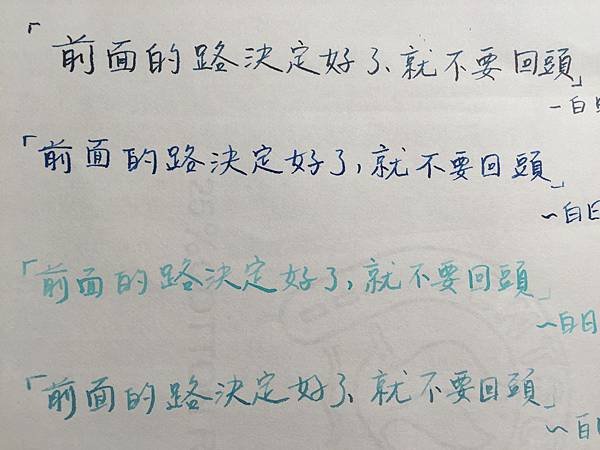 「前面的路決定好了、就不要回頭」
~白日
「前面的路決定好了,就不要回頭」
~白日
「前面的路決定好了,就不要回頭」
~白日
「前面的路決定好了、就不要回頭」
~白日